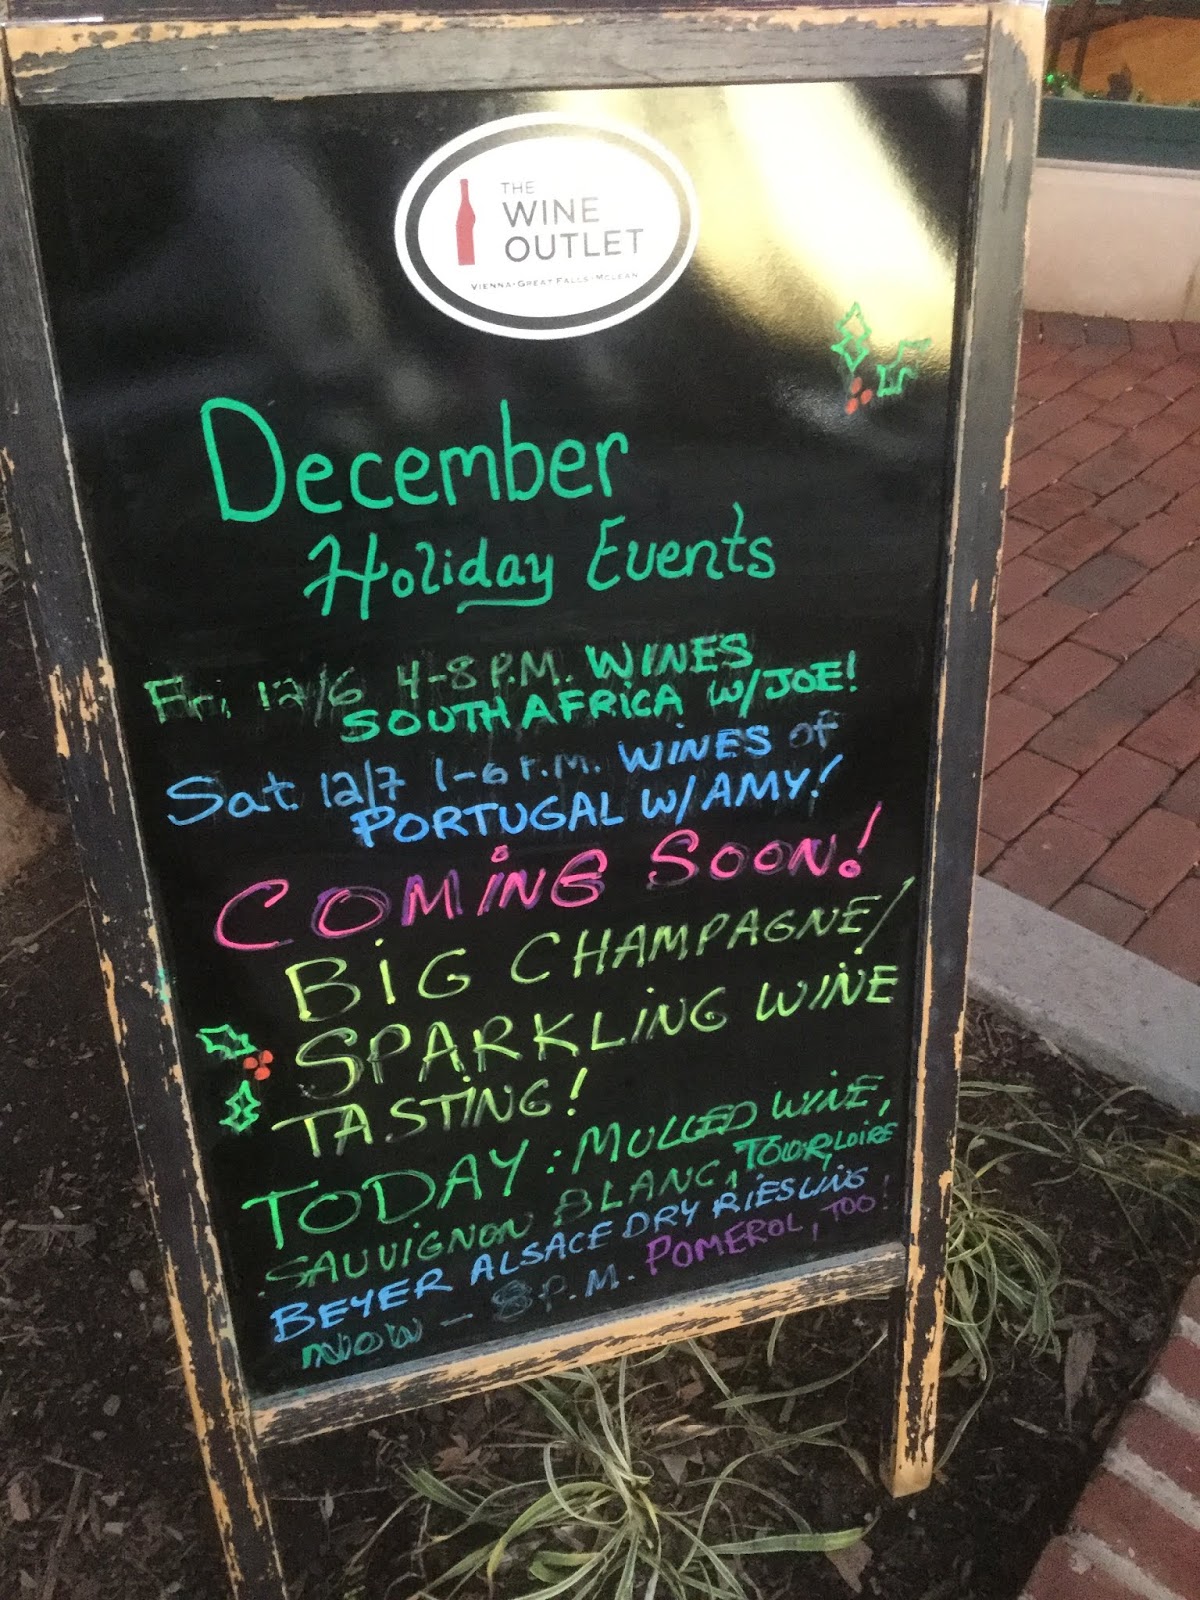 THE
WINE
OUTLET
VIENNA · GREAT FALLS · MCLEAN
December
Holiday Events
Fri, 12/6 4-8 P.M. WINES
SOUTH AFRICA W/JOE!
Sat. 12/7 1-6 P.M. WINES of
PORTUGAL W/AMY!
COMING SOON!
BIG CHAMPAGNE/
SPARKLING WINE
TASTING!
TODAY: MULLED WINE,
SAUVIGNON BLANC, TOUR, LOIRE
BEYER ALSACE DRY RIESLING
NOW - 8 P.M. POMEROL, TOO!